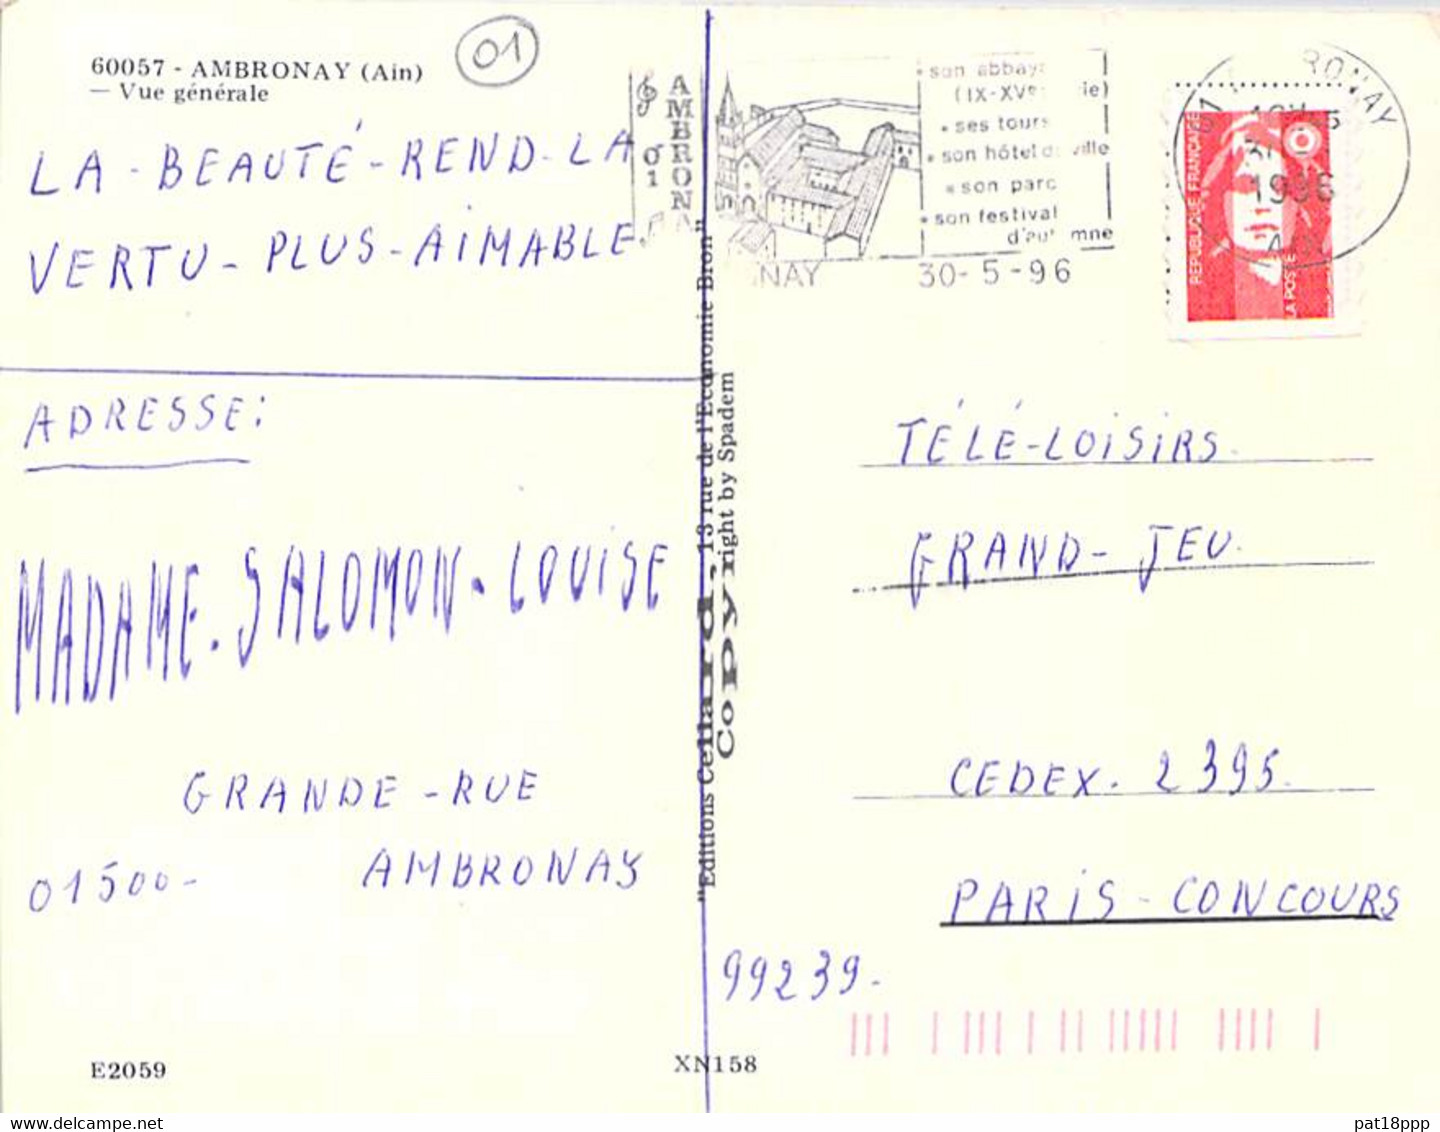 60057 - AMBRONAY (Ain)
— Vue générale
01
LA - BEAUTÉ - REND - LA
VERTU - PLUS - AIMABLE
ADRESSE:
MADAME. SALOMON - LOUISE
GRANDE - RUE
01500 - AMBRONAY
E2059
XN158
"Editions Cellard, 13 rue de l'Economie Bron"
Copyright by Spadem
01
AMBRONA
son abbaye
(IX-XVe
ses tours
son hôtel de ville
son parc
son festival
d'automne
30-5-96
1996
REPUBLIQUE FRANÇAISE
LA POSTE
TÉLÉ-LOISIRS.
GRAND - JEU.
CEDEX. 2395.
PARIS - CONCOURS
99239.
delcampe.net
pat18ppp